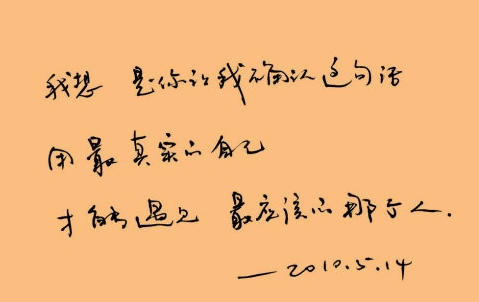 我想 是你让我确认这句话
用最真实的自己
才能遇见 最应该的那个人.
—2010.5.14